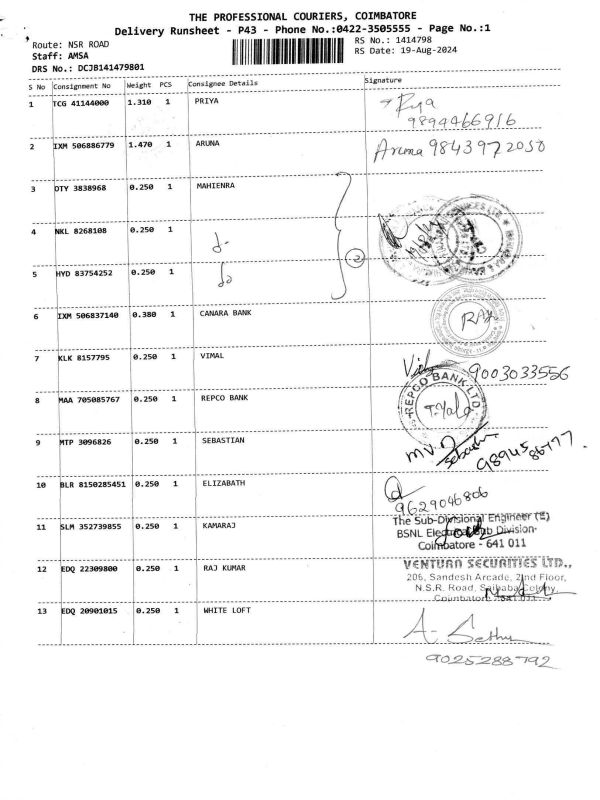 THE PROFESSIONAL COURIERS, COIMBATORE
Delivery Runsheet - P43 - Phone No.:0422-3505555 - Page No.:1
Route: NSR ROAD
RS No.: 1414798
Staff: AMSA
RS Date: 19-Aug-2024
DRS No.: DCJB141479801
S No Consignment No Weight PCS Consignee Details Signature
1 TCG 41144000 1.310 1 PRIYA
9894466916
2 IXM 506886779 1.470 1 ARUNA Aruna 9843972050
3 OTY 3838968 0.250 1 MAHIENRA
4 NKL 8268108 0.250 1
5 HYD 83754252 0.250 1
2
6 IXM 506837140 0.380 1 CANARA BANK
7 KLK 8157795 0.250 1 VIMAL 9003033556
8 MAA 705085767 0.250 1 REPCO BANK REPCO BANK LTD
9 MTP 3096826 0.250 1 SEBASTIAN
10 BLR 8150285451 0.250 1 ELIZABATH
9629046806
11 SLM 352739855 0.250 1 KAMARAJ The Sub-Divisional Engineer (E)
BSNL Electrical Sub Division
Coimbatore - 641 011
12 EDQ 22309800 0.250 1 RAJ KUMAR VENTURA SECURITIES LTD.,
206, Sandesh Arcade, 2nd Floor,
N.S.R. Road, Saibaba Colony,
Coimbatore - 641 011
13 EDQ 20901015 0.250 1 WHITE LOFT
A. Sethu
9025288792